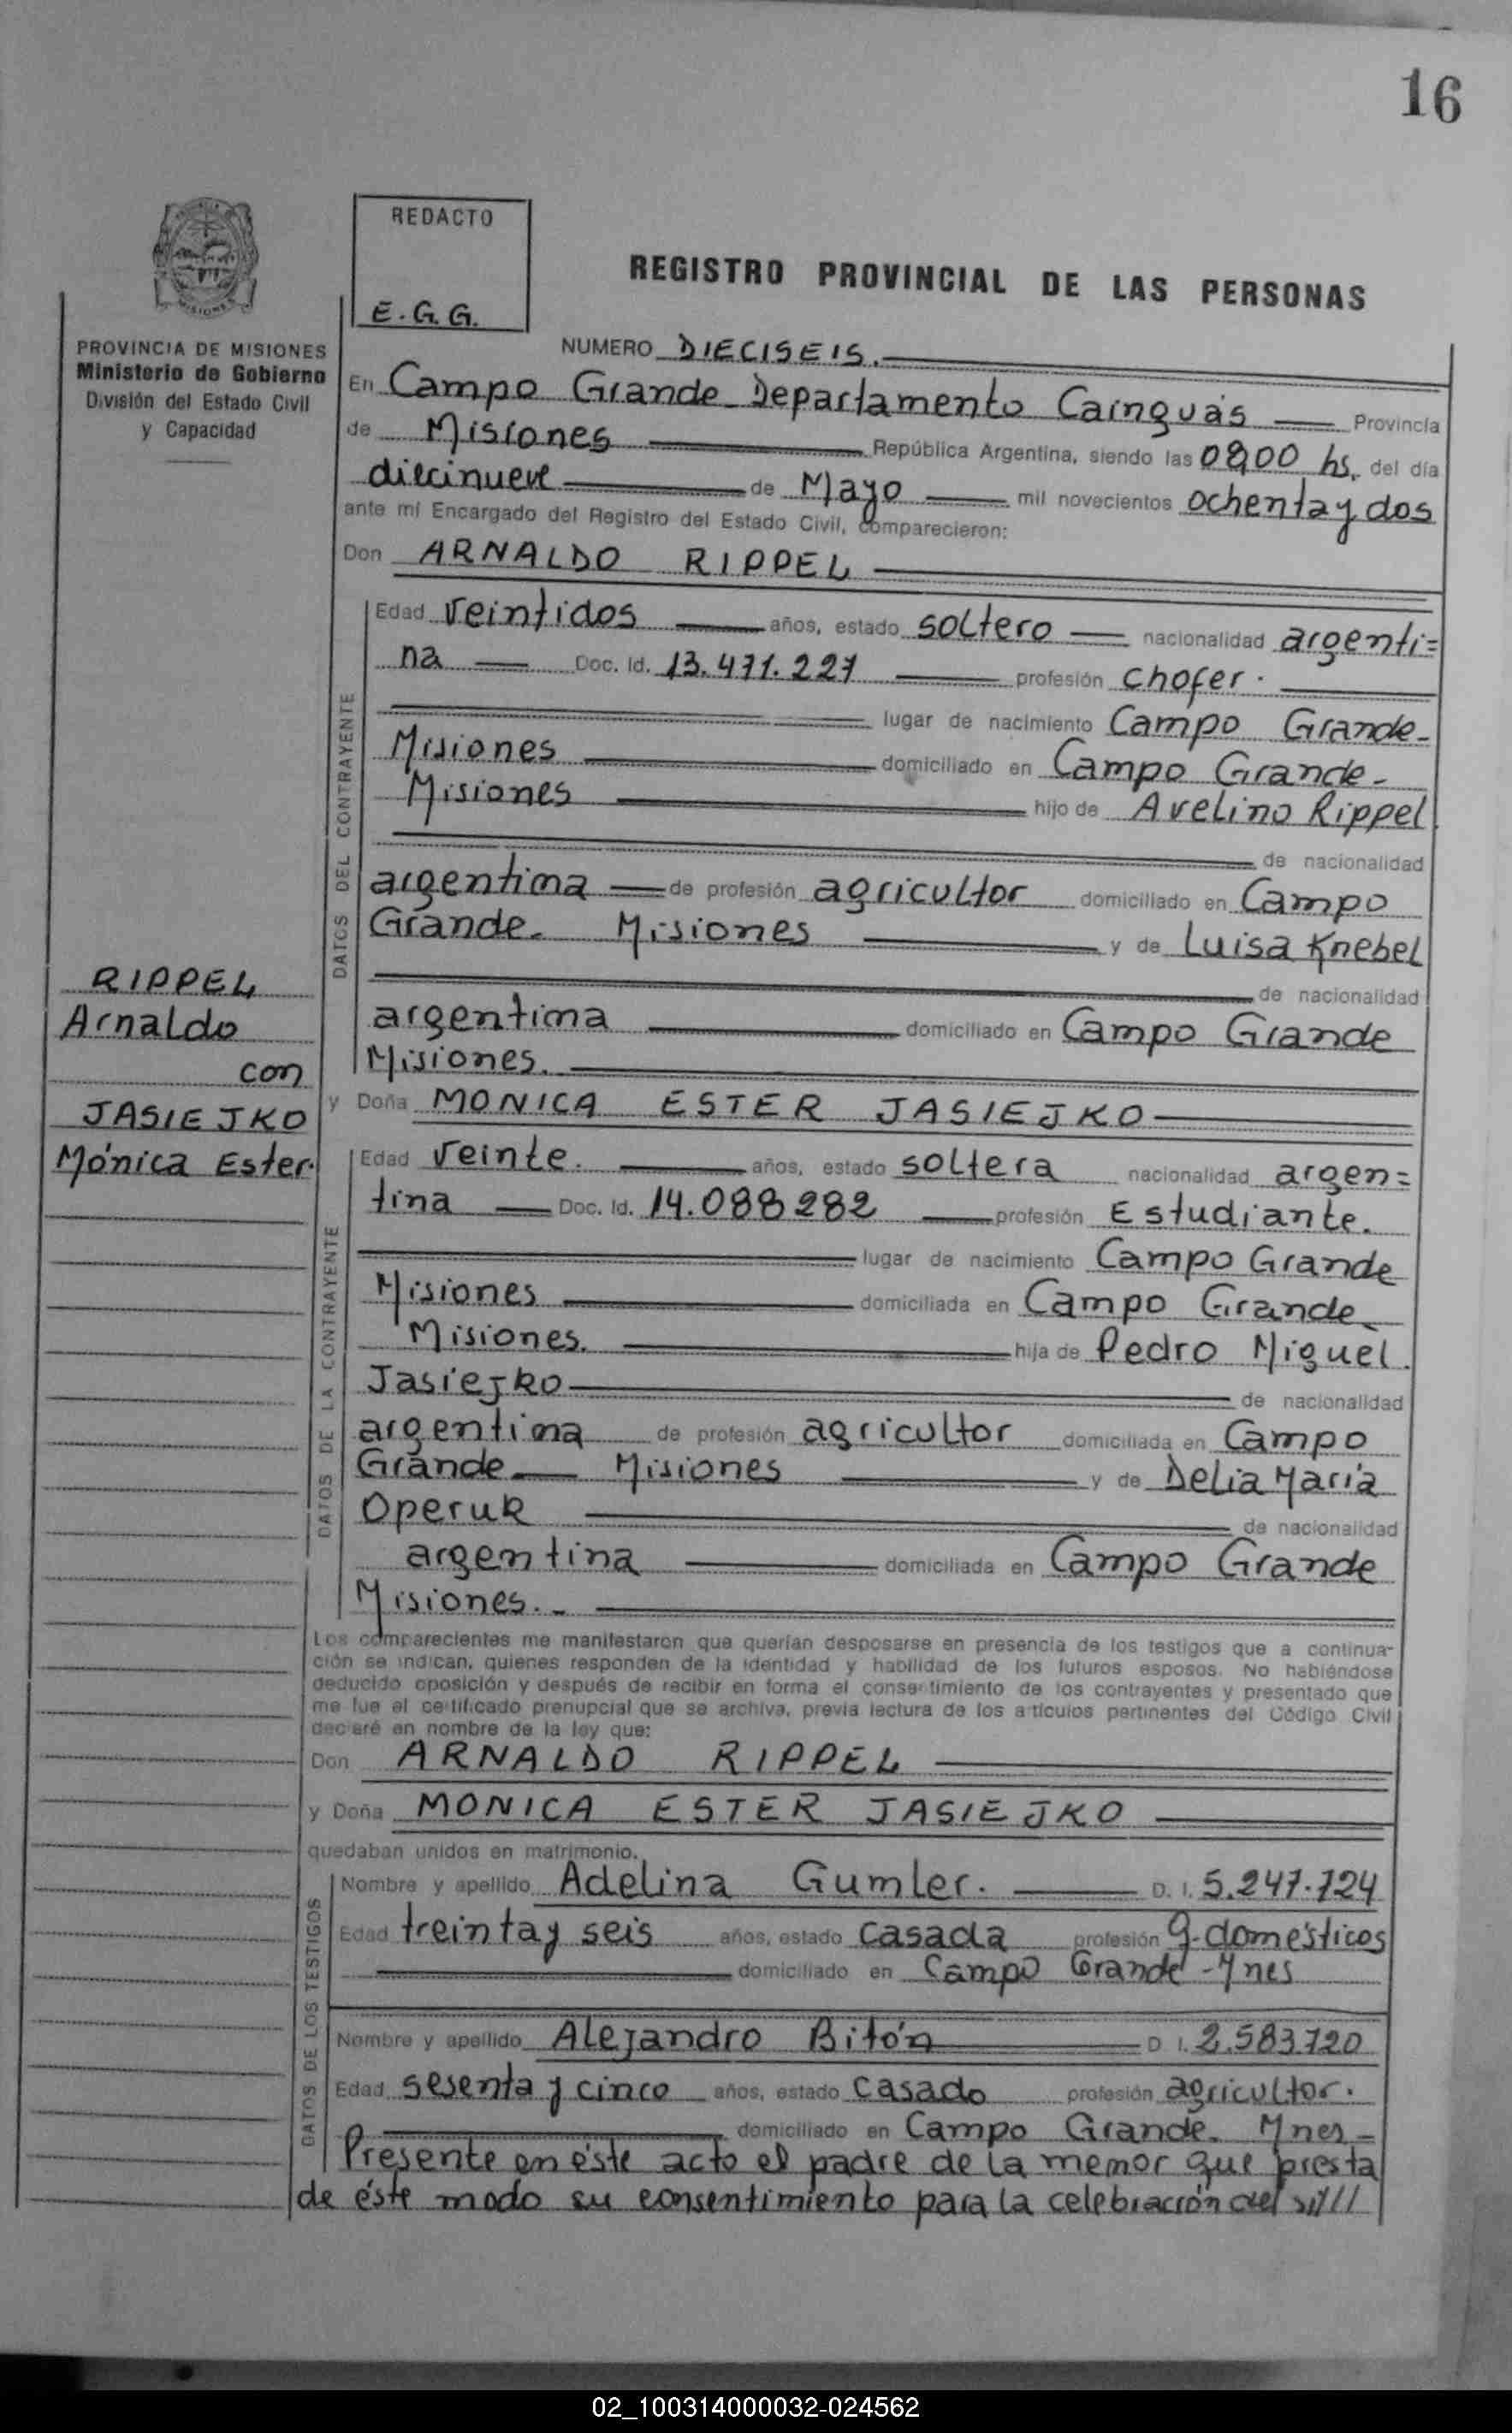 16
REDACTO
E.G.G.
REGISTRO PROVINCIAL DE LAS PERSONAS
PROVINCIA DE MISIONES
Ministerio de Gobierno
División del Estado Civil
y Capacidad
NUMERO DIECISEIS.
En Campo Grande Departamento Cainguás Provincia
de Misiones República Argentina, siendo las 0900 hs. del día
diecinueve de Mayo mil novecientos ochenta y dos
ante mí Encargado del Registro del Estado Civil, comparecieron:
Don ARNALDO RIPPEL
DATOS DEL CONTRAYENTE
Edad veintidos años, estado soltero nacionalidad argenti=
na Doc. Id. 13.471.227 profesión chofer.
lugar de nacimiento Campo Grande-
Misiones domiciliado en Campo Grande-
Misiones hijo de Avelino Rippel
de nacionalidad
argentina de profesión agricultor domiciliado en Campo
Grande- Misiones y de Luisa Knebel
de nacionalidad
argentina domiciliado en Campo Grande
Misiones.
RIPPEL
Arnaldo
con
JASIEJKO
Mónica Ester.
y Doña MONICA ESTER JASIEJKO
DATOS DE LA CONTRAYENTE
Edad veinte. años, estado soltera nacionalidad argen=
tina Doc. Id. 14.088282 profesión Estudiante.
lugar de nacimiento Campo Grande
Misiones domiciliada en Campo Grande-
Misiones. hija de Pedro Miguel
Jasiejko de nacionalidad
argentina de profesión agricultor domiciliada en Campo
Grande Misiones y de Delia María
Operuk de nacionalidad
argentina domiciliada en Campo Grande
Misiones.-
Los comparecientes me manifestaron que querían desposarse en presencia de los testigos que a continua-
ción se indican, quienes responden de la identidad y habilidad de los futuros esposos. No habiéndose
deducido oposición y después de recibir en forma el consentimiento de los contrayentes y presentado que
me fue el certificado prenupcial que se archiva, previa lectura de los artículos pertinentes del Código Civil
declaré en nombre de la ley que:
Don ARNALDO RIPPEL
y Doña MONICA ESTER JASIEJKO
quedaban unidos en matrimonio.
DATOS DE LOS TESTIGOS
Nombre y apellido Adelina Gumler. D. I. 5.247.724
Edad treinta y seis años, estado casada profesión q. domésticos
domiciliado en Campo Grande - Mnes
Nombre y apellido Alejandro Bitón D. I. 2.583.720
Edad sesenta y cinco años, estado casado profesión agricultor.
domiciliado en Campo Grande. Mnes-
Presente en éste acto el padre de la menor que presta
de éste modo su consentimiento para la celebración del
02_100314000032-024562